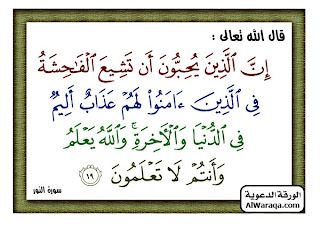 قال الله تعالى :
إِنَّ ٱلَّذِينَ يُحِبُّونَ أَن تَشِيعَ ٱلْفَـٰحِشَةُ
فِى ٱلَّذِينَ ءَامَنُوا۟ لَهُمْ عَذَابٌ أَلِيمٌ
فِى ٱلدُّنْيَا وَٱلْأَخِرَةِ ۚ وَٱللَّهُ يَعْلَمُ
وَأَنتُمْ لَا تَعْلَمُونَ ١٩
سورة النور
الورقة الدعوية
AlWaraqa.com